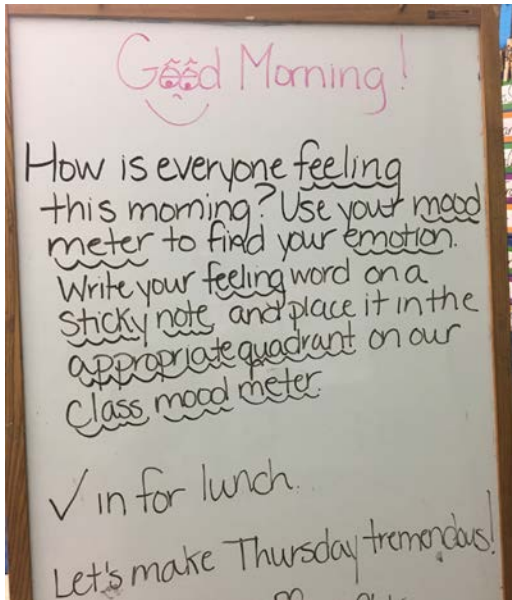 Good Morning!
How is everyone feeling
this morning? Use your mood
meter to find your emotion.
Write your feeling word on a
sticky note and place it in the
appropriate quadrant on our
class mood meter.
✓ in for lunch.
Let's make Thursday tremendous!